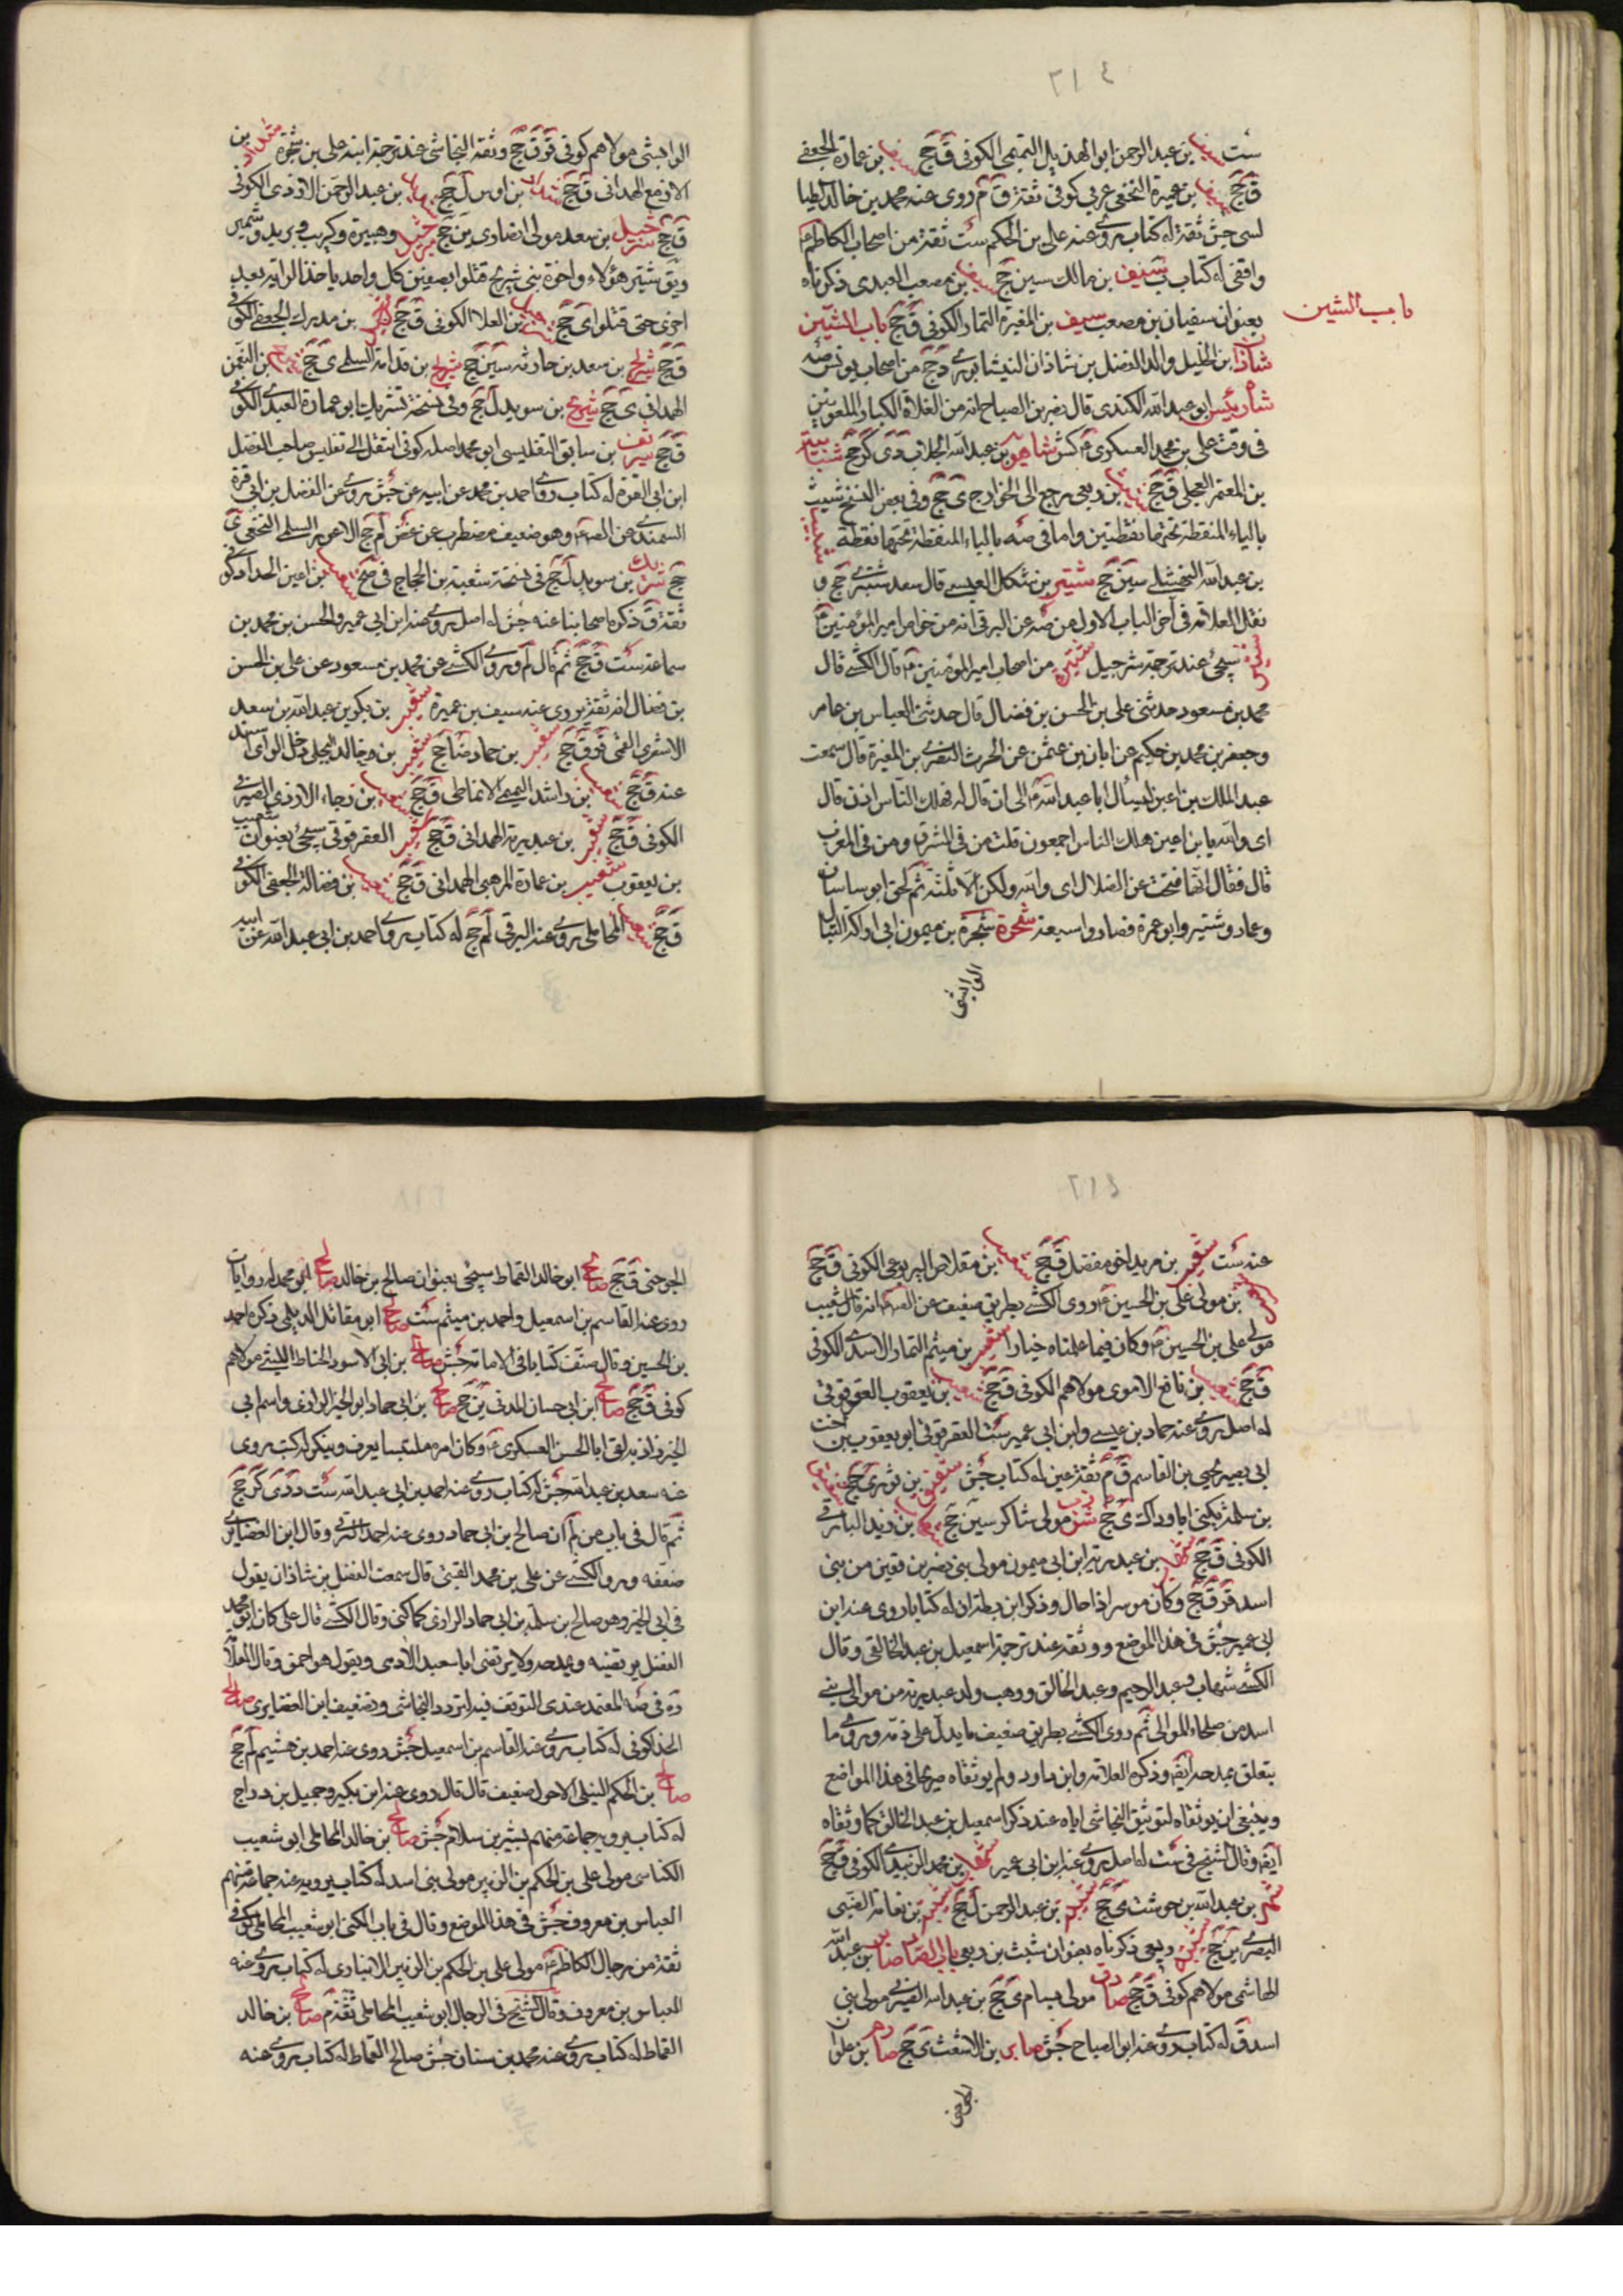 ٢١٤
ست سيف بن عبد الرحمن ابو الهذيل التميمى الكوفى ق جح سيف بن عمارة الجعفى
ق جح سيف بن عميرة النخعى عربى كوفى ثقة ق م روى عنه محمد بن خالد الطيا
لسى جش ثقة له كتاب روى عنه على بن الحكم ست ثقة من اصحاب الكاظم ع
واقفى له كتاب ب شنيف بن مالك سين جح سيف بن مصعب العبدى ذكرناه
بعنوان سفيان بن مصعب سيف بن المغيرة التمار الكوفى ق جح باب الشين
باب الشين
شاذان بن الخليل والد الفضل بن شاذان النيشابورى د جح من اصحاب يونس صه
شاه رئيس ابو عبد الله الكندى قال نصر بن الصباح انه من الغلاة الكبار الملعونين
فى وقت على بن محمد العسكرى ع كش شاهويه بن عبد الله الجلاب دى كر جح
بن المعتمر العجلى ق جح شبث بن ربعى رجع الى الخوارج ى جح وفى بعض النسخ شيث
بالياء المنقطة تحتها نقطتين واما فى صه بالباء المنقطة تحتها نقطة شبيب
بن عبد الله النهشلى سين جح شتير بن شكل العبسى قال سعد شتير جح و
نقل العلامة فى آخر الباب الاول من صه عن البرقى انه من خواص امير المؤمنين ع
سيجئ عند ترجمة شرحبيل شتيرة من اصحاب امير المؤمنين ع قال الكشى قال
محمد بن مسعود حدثنى على بن الحسن بن فضال قال حدثنى العباس بن عامر
وجعفر بن محمد بن حكيم عن ابان بن عثمن عن الحرث النضرى بن المغيرة قال سمعت
عبد الملك بن اعين يسأل ابا عبد الله ع الى ان قال له فهلك الناس اذن قال
اى والله يا بن اعين هلك الناس اجمعون قلت من فى الشرق ومن فى الغرب
قال فقال انها فتحت عن الضلال اى والله ولكن الا ثلثة ثم لحق ابو ساسان
وعمار وشتير وابو عمرة فصاروا سبعة شجرة شجرة بن ميمون ابى اراكة النبال
الوابشى
الوابشى مولاهم كوفى قر ق جح وثقه النجاشى عند ترجمة ابنه على بن شجرة شداد بن
الازمع الهمدانى ق جح شداد بن اوس ل جح شداد بن عبد الرحمن الازدى الكوفى
ق جح شرحبيل بن سعد مولى انصارى ين جح شرحبيل وهبيرة وكريب وبريد وشمير
ويق شتير هؤلاء واخوة بنى شريح قتلوا بصفين كل واحد ياخذ الراية بعد
اخرى حتى قتلوا ى جح بن العلا الكوفى ق جح بن مدرك الجعفى الكوفى
ق جح شريح بن سعد بن حارثه سين جح شريح بن قدامة السلمى ى جح شريح بن النعمن
الهمدانى ى جح شريح بن سويد ل جح وفى نسخة شريك ابو عمارة العبدى الكوفى
ق جح شريف بن سابق التفليسى ابو محمد اصله كوفى انتقل الى تفليس صاحب الفضل
ابن ابى القرة له كتاب روى احمد بن محمد عن ابيه عن جش روى عن الفضل بن ابى قرة
السمندى عن الصه ع وهو ضعيف مضطرب عن غض لم جح الاعور السلمى النخعى ى
جح شريك بن سويد ل جح فى نسخة شعبة بن الحجاج ق صح شعيب بن اعين الحداد كوفى
ثقة ق ذكره اصحابنا عنه جش له اصل روى عنه ابن ابى عمير والحسن بن محمد بن
سماعة ست ق جح ثم قال لم وروى الكشى عن محمد بن مسعود عن على بن الحسن
بن فضال انه ثقة روى عنه سيف بن عميرة شعيب بن بكر بن عبد الله بن سعد
الاشعرى القمى ق ق جح شعيب بن حماد ضا جح شعيب بن خالد البجلى دخل الراى
عنه ق جح شعيب بن راشد التميمى الانماطى ق جح شعيب بن رجاء الازدى الصيرفى
الكوفى ق جح شعيب بن عبد ربه الهمدانى ق جح شعيب العقرقوقى سيجئ بعنوان شعيب
بن يعقوب شعيب بن عمارة المرهبى الهمدانى ق جح شعيب بن فضالة الجعفى الكوفى
ق جح شعيب المحاملى روى عنه البرقى لم جح له كتاب روى احمد بن ابى عبد الله عن ابيه
٢١٤
عنه ست شعيب بن مريد اخو مفضل ق جح شعيب بن مقلاص اليربوعى الكوفى ق جح
شعيب بن مولى على بن الحسين ع روى الكشى بطريق ضعيف عن الصه ع انه قال شعيب
مولى على بن الحسين ع وكان فيما علمناه خيارا شعيب بن ميثم التمار الاسدى الكوفى
ق جح شعيب بن نافع الاموى مولاهم الكوفى ق جح شعيب بن يعقوب العقرقوفى
له اصل روى عنه حماد بن عيسى وابن ابى عمير ست العقرقوقى ابو يعقوب بن اخت
ابى بصير يحيى بن القاسم ق م ثقة عين له كتاب جش شقيق بن ثور ى جح شقيق
بن سلمة يكنى ابا وداكة ى جح شوذب مولى شاكر سين جح شهاب بن زيد البارقى
الكوفى ق جح شهاب بن عبد ربه ابن ابى ميمون مولى بنى نصر بن قعين من بنى
اسد قر ق جح وكان موسرا ذا حال وذكر ابن بطة ان له كتابا روى عنه ابن
ابى عمير جش فى هذا الموضع ووثقه عند ترجمة اسمعيل بن عبد الخالق وقال
الكشى شهاب وعبد الرحيم وعبد الخالق ووهب ولد عبد ربه من موالى بنى
اسد من صلحاء الموالى ثم روى الكشى بطريق ضعيف ما يدل على ذمه وروى ما
يتعلق بمدحه ايضه وذكره العلامة وابن داود ولم يوثقاه صريحا فى هذا المواضع
وينبغى ان يوثقاه لتوثيق النجاشى اياه عند ذكر اسمعيل بن عبد الخالق كما وثقاه
ايضه وقال الشيخ فى ست له اصل روى عنه ابن ابى عمير شهاب بن محمد الزبيدى الكوفى ق جح
شهر بن عبد الله بن حوشب ى جح شيبة بن عبد الرحمن ل جح شيبة بن نعامة الضبى
البصرى ين جح شيث بن ربعى ذكرناه بعنوان شبث بن ربعى باب الصاد صابر بن عبد الله
الهاشمى مولاهم كوفى ق جح صادق مولى هسام ى جح بن عبد الله الصيرفى مولى بنى
اسد ق له كتاب روى عنه ابو الصباح جش صابر بن الاشعث ى جح صارم بن علوان
الجوخى
الجوخى ق جح صالح ابو خالد القماط سيجئ بعنوان صالح بن خالد صالح ابو محمد له روايات
روى عنه القاسم بن اسمعيل واحمد بن ميثم ست صالح ابو مقاتل الديلمى ذكره احمد
بن الحسين وقال صنف كتابا فى الامامة جش صالح بن ابى الاسود الحناط الليثى مولاهم
كوفى ق جح صالح ابن ابى حسان المدنى ين جح صالح بن ابى حماد ابو الخير الرازى واسم ابى
الخير زاذبه لقى ابا الحسن العسكرى ع وكان امره ملتبسا يعرف وينكر له كتب روى
عنه سعد بن عبد الله جش له كتاب روى عنه احمد بن ابى عبد الله ست د دى كر جح
ثم قال فى باب من لم ان صالح بن ابى حماد روى عنه احمد البرقى وقال ابن الغضايرى
ضعفه وروى الكشى عن على بن محمد القتيبى قال سمعت الفضل بن شاذان يقول
فى ابى الخير وهو صالح بن سلمة بن ابى حماد الرازى كما كنى وقال الكشى قال على كان ابو محمد
الفضل يرتضيه ويمدحه ولا يرتضى ابا سعيد الادمى ويقول هو احمق وقال العلامة
ره فى صه المعتمد عندى التوقف فيه لتردد النجاشى وتضعيف ابن الغضايرى صالح
الحذا كوفى له كتاب روى عنه القاسم بن اسمعيل جش روى عنه احمد بن هشيم لم جح
صالح بن الحكم النيلى الاحول ضعيف قال قال روى عنه ابن بكير وجميل بن دراج
له كتاب يرويه جماعة منهم بشير بن سلام جش صالح بن خالد المحاملى ابو شعيب
الكناسى مولى على بن الحكم بن الزبير مولى بنى اسد له كتاب يرويه عنه جماعة منهم
العباس بن معروف جش فى هذا الموضع وقال فى باب الكنى ابو شعيب المحاملى كوفى
ثقة من رجال الكاظم ع مولى على بن الحكم بن الزبير الانبارى له كتاب روى عنه
العباس بن معروف وقال الشيخ فى الرجال ابو شعيب المحاملى ثقة م صالح بن خالد
القماط له كتاب روى عنه محمد بن سنان جش صالح القماط له كتاب روى عنه